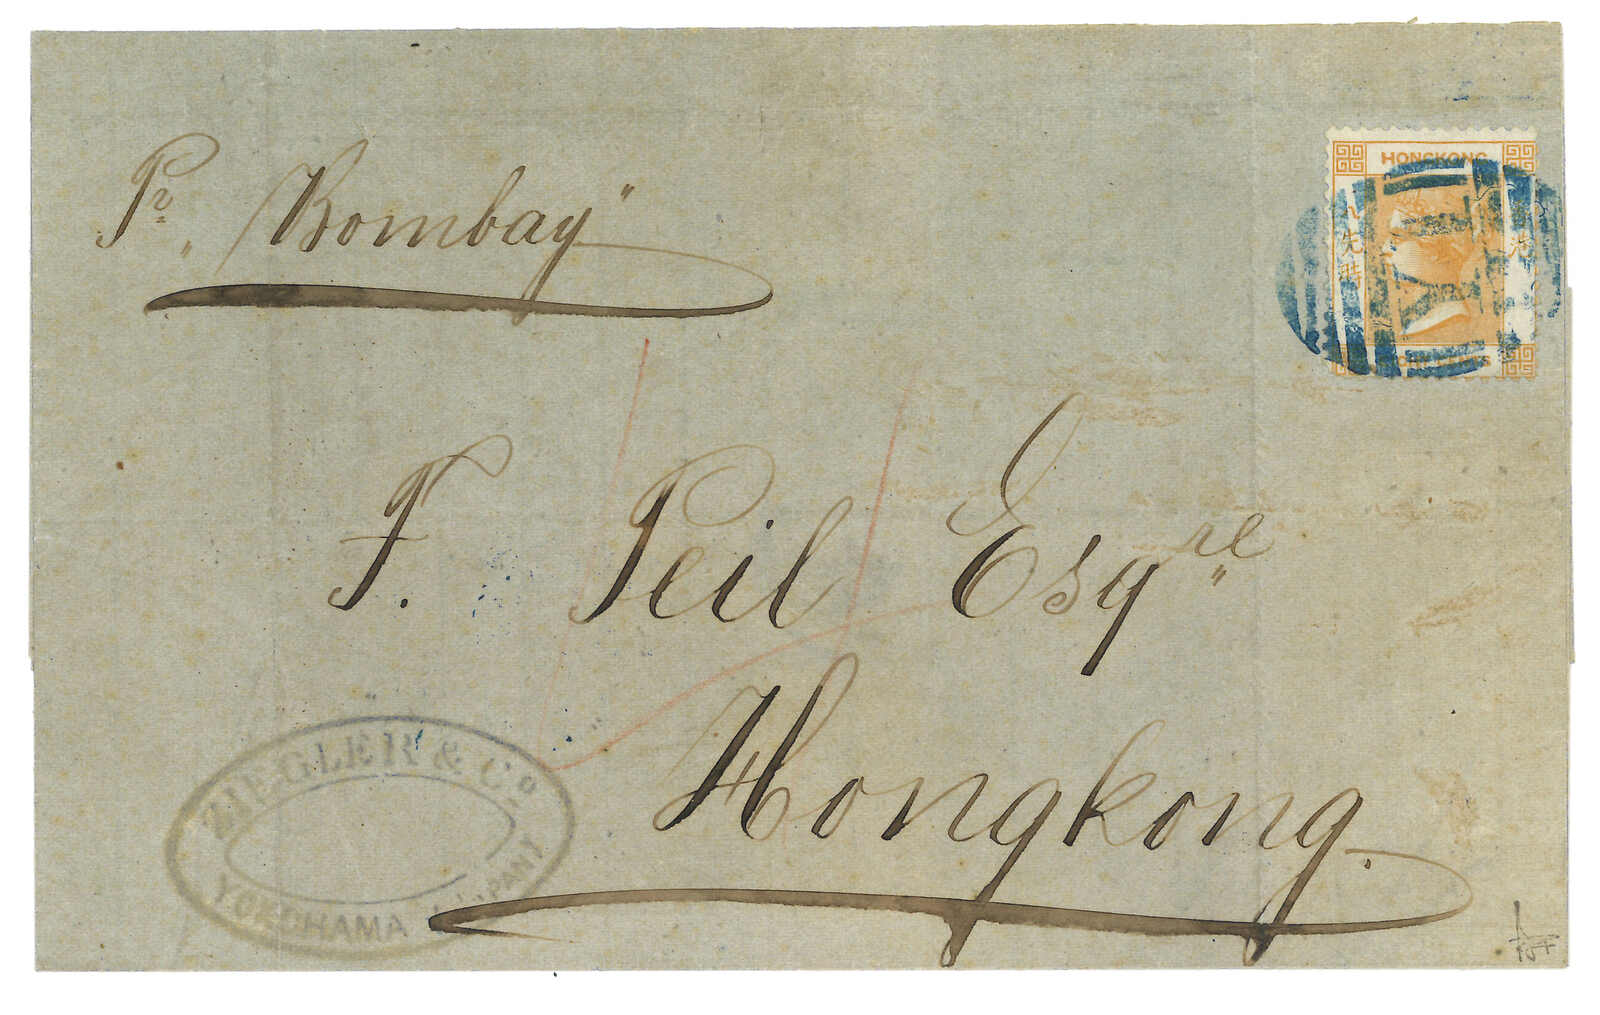 Pr. "Bombay"
HONGKONG
先時
Y1
F. Peil Esqre
Hongkong.
ZIEGLER & Co.
YOKOHAMA JAPAN